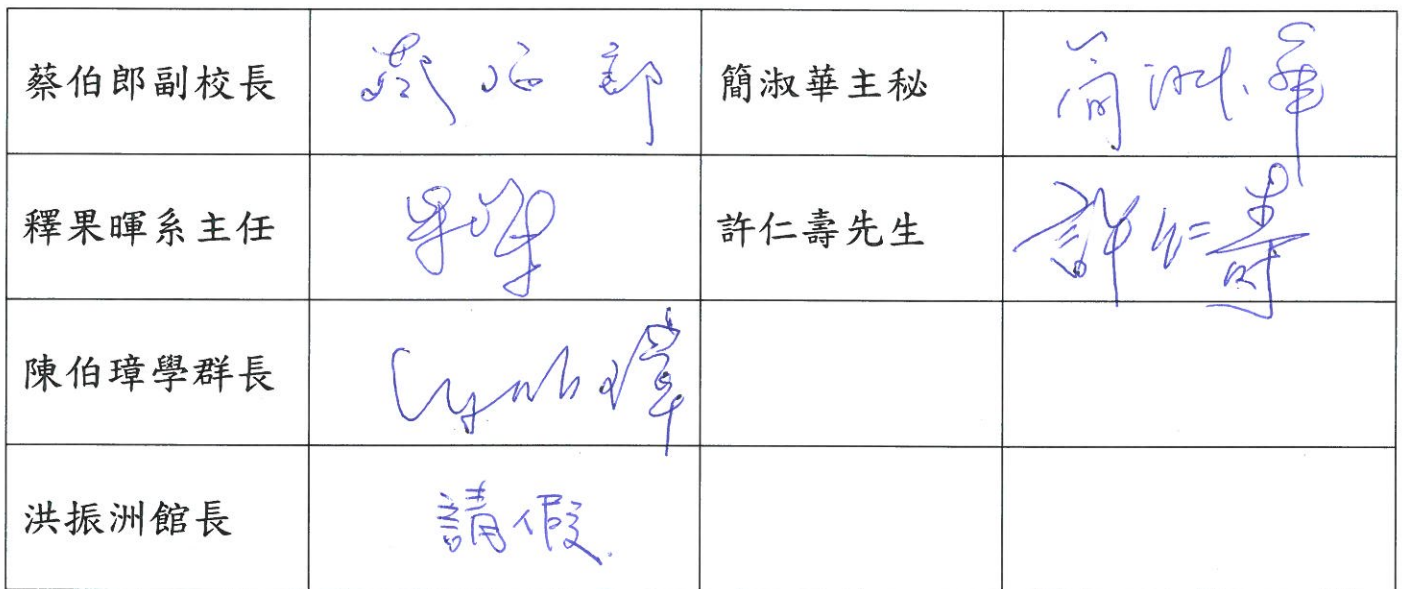 蔡伯郎副校長 蔡伯郎 簡淑華主秘 簡淑華
釋果暉系主任 果暉 許仁壽先生 許仁壽
陳伯璋學群長 陳伯璋
洪振洲館長 請假